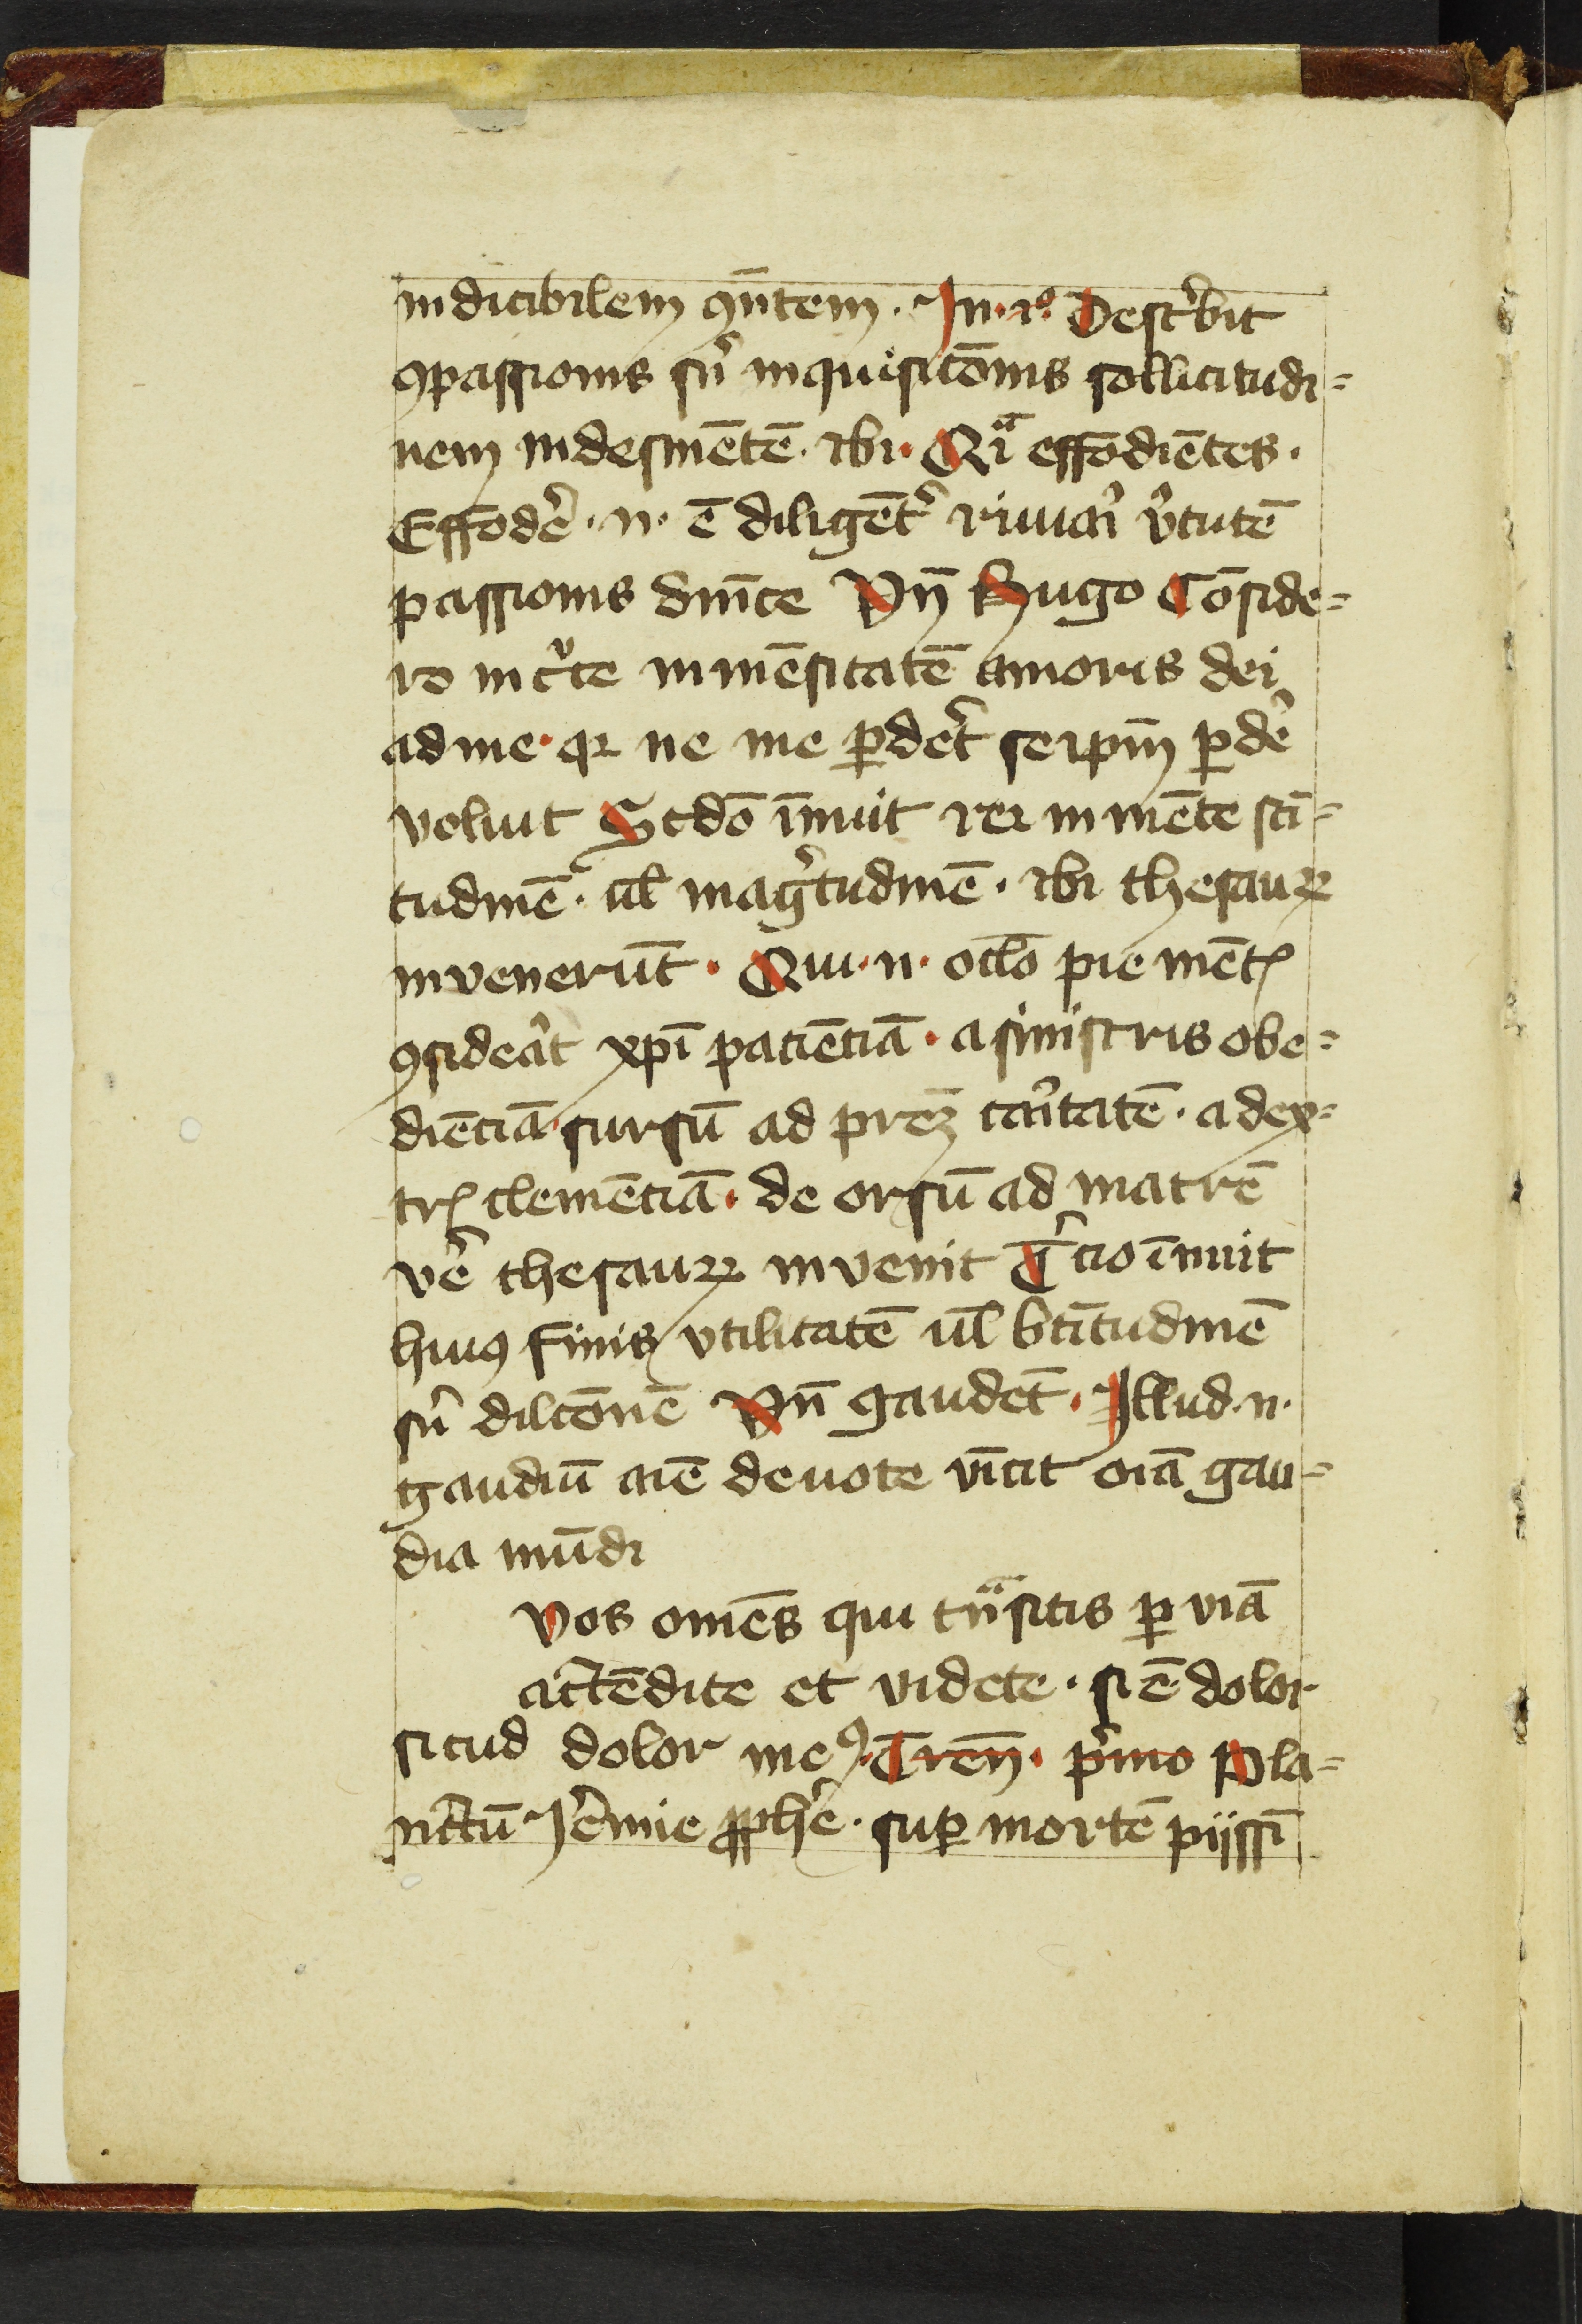 indicibilem ꝯn̄tem. In. 1º. Desc̾bit
ꝯpassionis su᷑ inquisitōnis sollicitudi=
nem indesinētē. ibi. Qiᷓ effodiētes.
Effode᷑. n. ē diligēt᷑ rimai᷑ v᷑tutē
passionis dnīce Vn̄ Hugo Cōside=
ro inc᷑te inmēsitatē amoris dei
ad me. qꝛ ne me ꝑdet᷑ seipm̄ ꝑde᷑
voluit Scdō innuit rei inmēte sti=
tudinē. ul̄ mag᷑tudinē. ibi thesauꝝ
invenerūt. Qui. n. oclō pie mētꝭ
ꝯsidea᷑t xp̄i patiētiā. a sinistris obe=
diētiā. sursū ad prēꝫ cai᷑tatē. a dex=
trꝭ clemētiā. deorsū ad matrē
ve᷑ thesauꝝ invenit T᷑cio īnuit
huiꝯ finis vtilitatē ul̄ btītudinē
su᷑ dilcōnē Vn̄ gaudēt. Illud. n.
gaudiū aīe deuote vīcit oīa gau=
dia mūdi
Vos omēs qui tnᷓsitis ꝑ viā
actēdite et videte. si ē dolor
sicud dolor meꝯ. Tren̄. p᷑mo Pla=
nctū Je᷑mie ꝓphē. suꝑ mortē pijssī